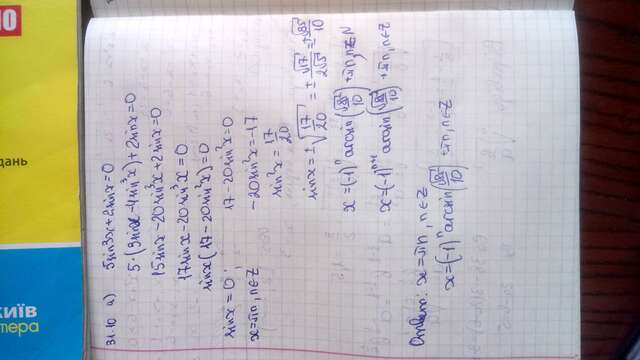 31.10 а) 5sin3x+2sinx=0
5·(3sinx-4sin³x)+2sinx=0
15sinx-20sin³x+2sinx=0
17sinx-20sin³x=0
sinx(17-20sin²x)=0
sinx=0; 17-20sin²x=0
x=πn, n∈Z -20sin²x=-17
sin²x=17/20
sinx=±√(17/20)=±√17/(2√5)=±√85/10
x=(-1)ⁿ arcsin(√85/10)+πn, n∈
x=(-1)ⁿ⁺¹ arcsin(√85/10)+πn, n∈Z
x=πn, n∈Z
x=(-1)ⁿ arcsin(√85/10)+πn, n∈Z
дань
київ
тера
10